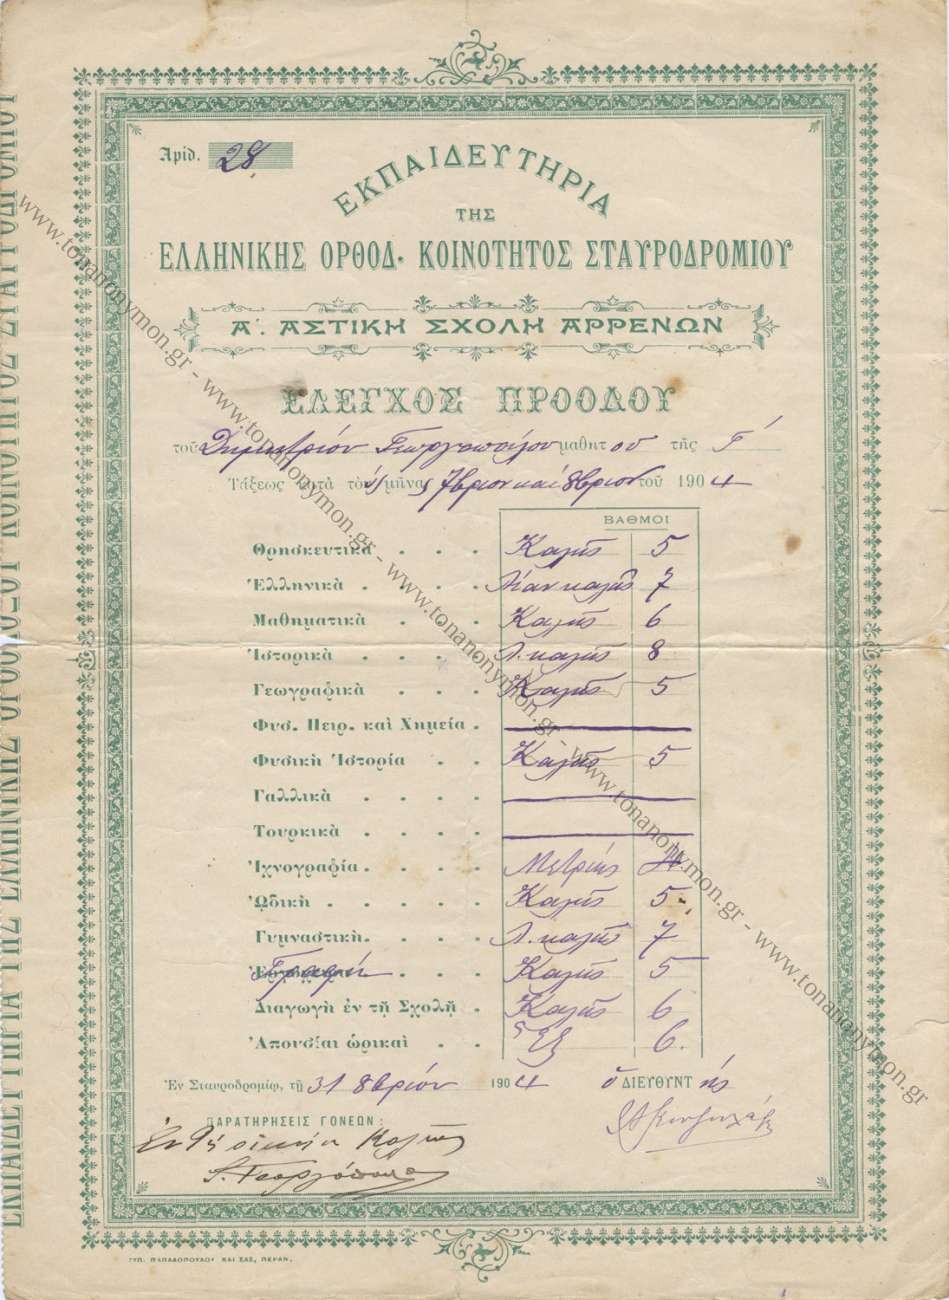 Ἀριθ. 28
ΕΚΠΑΙΔΕΥΤΗΡΙΑ
ΤΗΣ
ΕΛΛΗΝΙΚΗΣ ΟΡΘΟΔ. ΚΟΙΝΟΤΗΤΟΣ ΣΤΑΥΡΟΔΡΟΜΙΟΥ
Α΄. ΑΣΤΙΚΗ ΣΧΟΛΗ ΑΡΡΕΝΩΝ
ΕΛΕΓΧΟΣ ΠΡΟΟΔΟΥ
τοῦ Δημητρίου Γεωργοπούλου μαθητοῦ τῆς Γ΄
Τάξεως κατὰ τὸν μῆνα 7βριον καὶ 8βριον τοῦ 1904
ΒΑΘΜΟΙ
Θρησκευτικὰ . . . Καλῶς 5
Ἑλληνικὰ . . . . Λίαν καλῶς 7
Μαθηματικὰ . . . Καλῶς 6
Ἱστορικὰ . . . . Λ. καλῶς 8
Γεωγραφικὰ . . . Καλῶς 5
Φυσ. Πειρ. καὶ Χημεία .
Φυσικὴ Ἱστορία . . Καλῶς 5
Γαλλικὰ . . . .
Τουρκικὰ . . . .
Ἰχνογραφία . . . . Μετρίως 4
ᾨδικὴ . . . . . Καλῶς 5
Γυμναστικὴ . . . . Λ. καλῶς 7
Γραφὴ . . . Καλῶς 5
Διαγωγὴ ἐν τῇ Σχολῇ . Καλῶς 6
Ἀπουσίαι ὡρικαὶ . . Ἕξ 6.
Ἐν Σταυροδρομίῳ, τῇ 31 8βρίου 1904 ὁ ΔΙΕΥΘΥΝΤης
ΠΑΡΑΤΗΡΗΣΕΙΣ ΓΟΝΕΩΝ:
Ἐν τῇ οἰκίᾳ Καλῶς
ΤΥΠ. ΠΑΠΑΔΟΠΟΥΛΟΥ ΚΑΙ ΣΑΣ, ΠΕΡΑΝ.
ΕΚΠΑΙΔΕΥΤΗΡΙΑ ΤΗΣ ΕΛΛΗΝΙΚΗΣ ΟΡΘΟΔΟΞΟΥ ΚΟΙΝΟΤΗΤΟΣ ΣΤΑΥΡΟΔΡΟΜΙΟΥ
www.tonanonymon.gr - www.tonanonymon.gr - www.tonanonymon.gr - www.tonanonymon.gr - www.tonanonymon.gr